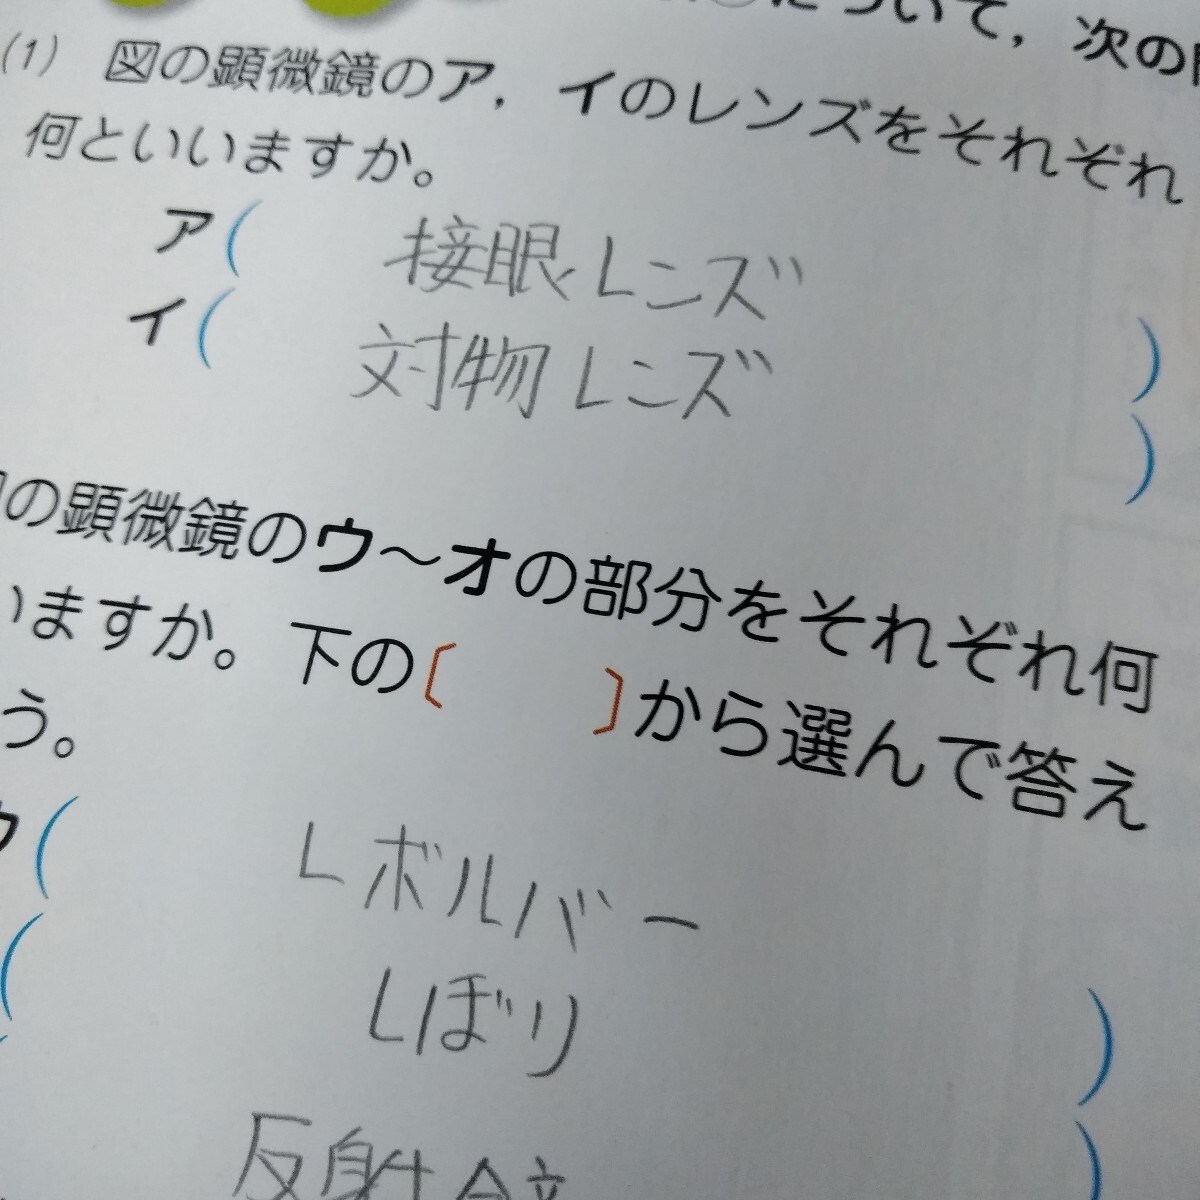 について，次の
(1) 図の顕微鏡のア，イのレンズをそれぞれ
何といいますか。
ア( 接眼レンズ )
イ( 対物レンズ )
の顕微鏡のウ～オの部分をそれぞれ何
いますか。下の〔 〕から選んで答え
う。
ウ( レボルバー )
( しぼり )
反射